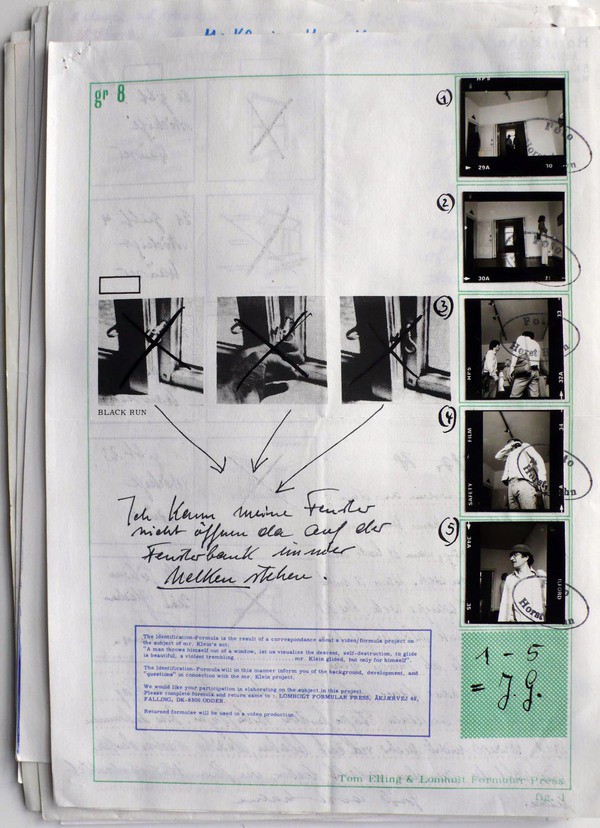 gr 8
(1)
29A
30
(2)
30A
BLACK RUN
(3)
HP5
37A
(4)
FILM
SAFETY
34
(5)
34A
35
ILFORD
Foto
Horst Hahn
Ich kann meine Fenster
nicht öffnen da auf der
Fensterbank immer
Nelken stehen.
The Identification-Formula is the result of a correspondance about a video/formula project on
the subject of mr. Klein's act:
"A man throws himself out of a window, let us visualize the descent, self-destruction, to glide
is beautiful, a violent trembling ........................mr. Klein glided, but only for himself".
The Identification-Formula will in this manner inform you of the background, development, and
"questions" in connection with the mr. Klein project.
We would like your participation in elaborating on the subject in this project.
Please complete formula and return same to : LOMHOLT FORMULAR PRESS,
FALLING, DK-8300 ODDER.
Returned formulas will be used in a video production.
1 - 5
= J.G.
Tom Elling & Lomholt Formular Press
fig. 1